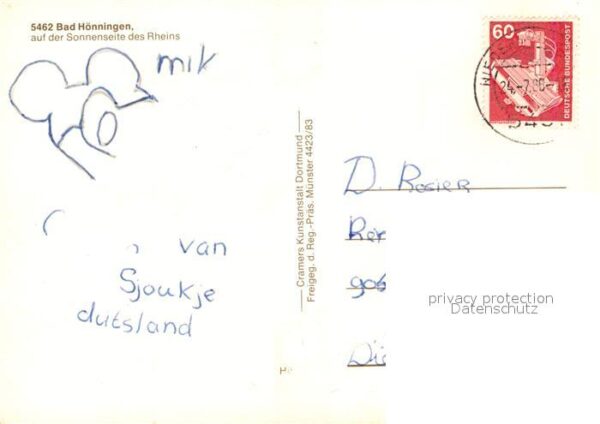 5462 Bad Hönningen,
auf der Sonnenseite des Rheins
mik
van
Sjoukje
dutsland
Cramers Kunstanstalt Dortmund
Freigeg. d. Reg.-Präs. Münster 4423/83
60
DEUTSCHE BUNDESPOST
D. Rosier
privacy protection
Datenschutz